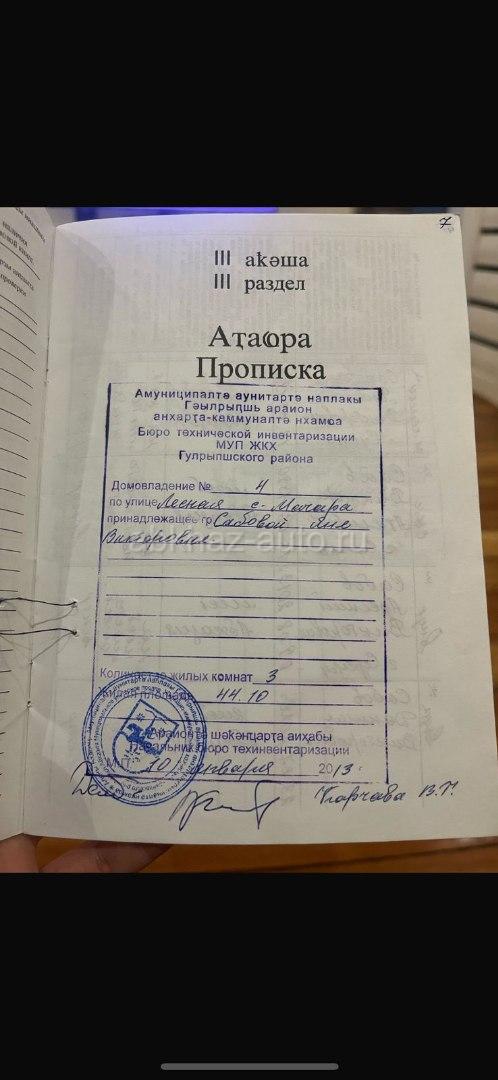 7
III акәша
III раздел
Аҭаҩра
Прописка
Амуниципалтә аунитартә наплакы
Гәылрыԥшь араион
анхарҭа-каммуналтә нхамҩа
Бюро технической инвентаризации
МУП ЖКХ
Гулрыпшского района
Домовладение № 4
по улице Лесная с. Мачара
принадлежащее гр Сабовой Яне
Викторовне
asmaz-auto.ru
Количество жилых комнат 3
Жилая площадь 44.10
Араионтә шәҟәԥҵарҭа аиҳабы
Начальник бюро техинвентаризации
М.П. 10 января 2013 г
Карчава В.Т.